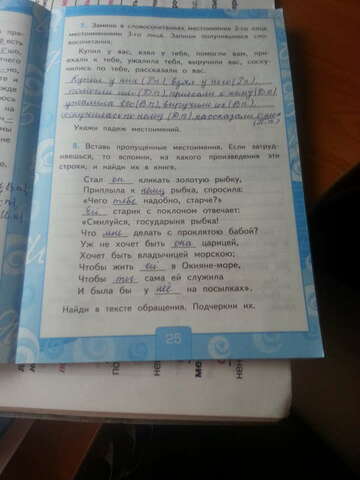 7. Замени в словосочетаниях местоимение 2-го лица
местоимением 3-го лица. Запиши получившиеся сло-
восочетания.
Купил у вас, взял у тебя, помогли вам, при-
ехали к тебе, ужалила тебя, выручили вас, соску-
чились по тебе, рассказали о вас.
Купил у них (Р.п), взял у него (Р.п),
помогли им (Д.п), приехали к нему (Д.п)
ужалила его (В.п), выручили их (В.п)
соскучились по нему (Д.п), рассказали о них
(П.п)
Укажи падеж местоимений.
8. Вставь пропущенные местоимения. Если затруд-
няешься, то вспомни, из какого произведения эти
строки, и найди их в книге.
Стал он кликать золотую рыбку,
Приплыла к нему рыбка, спросила:
«Чего тебе надобно, старче?»
Ей старик с поклоном отвечает:
«Смилуйся, государыня рыбка!
Что мне делать с проклятою бабой?
Уж не хочет быть она царицей,
Хочет быть владычицей морскою;
Чтобы жить ей в Окияне-море,
Чтобы ты сама ей служила
И была бы у неё на посылках».
Найди в тексте обращения. Подчеркни их.
25